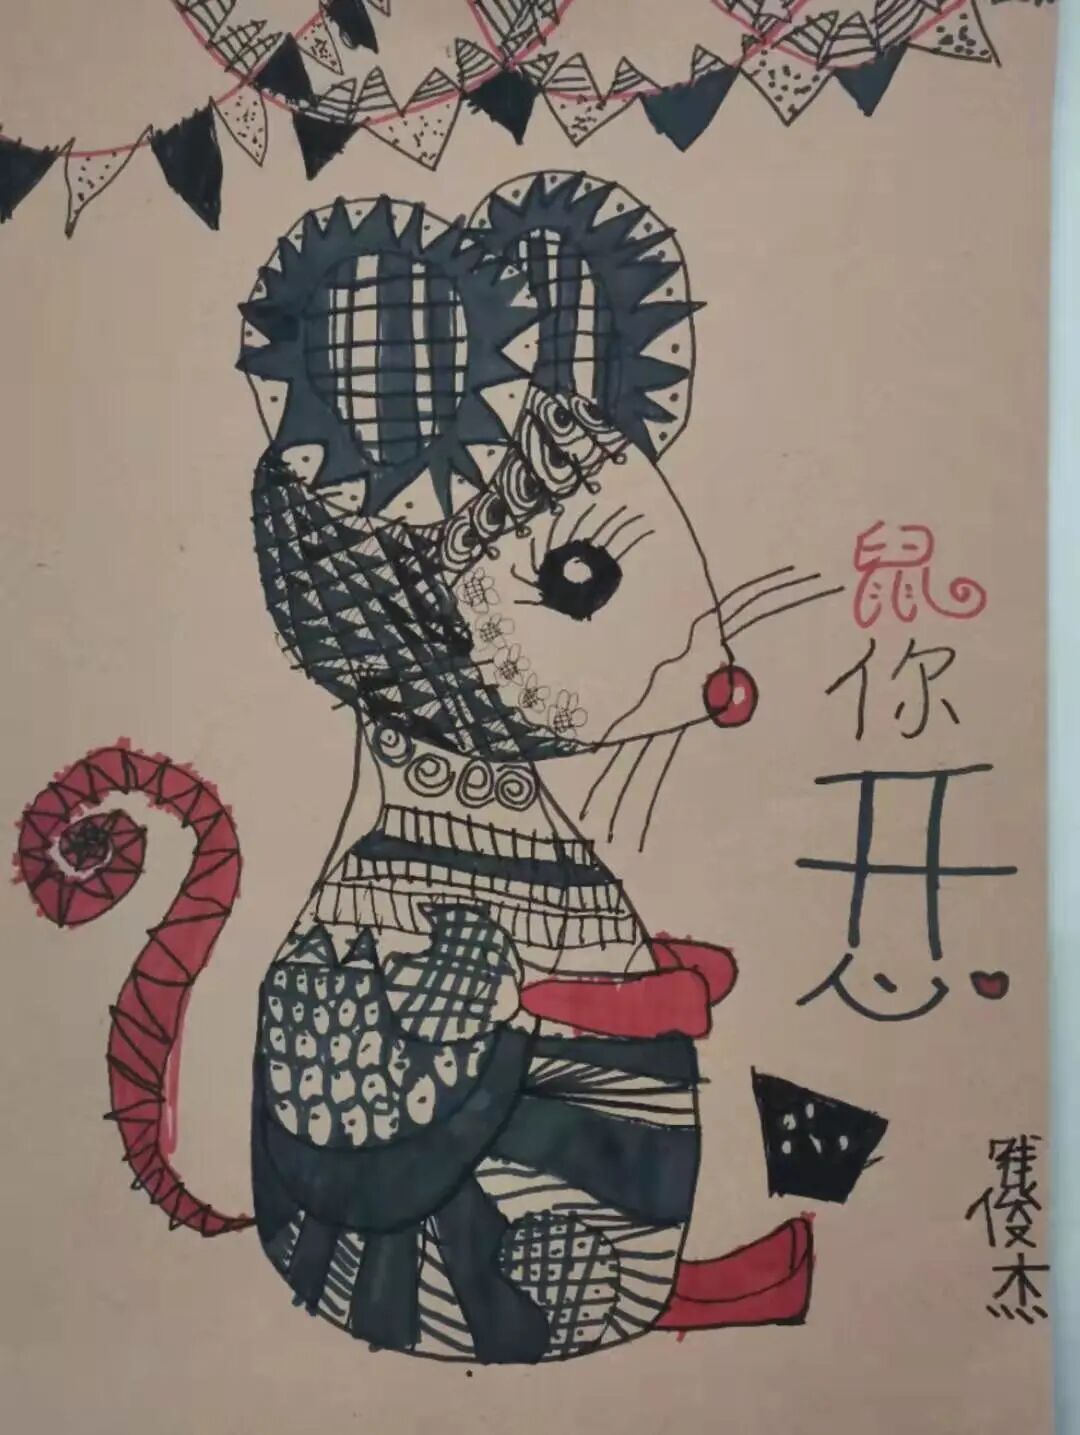 鼠你开心
俊杰